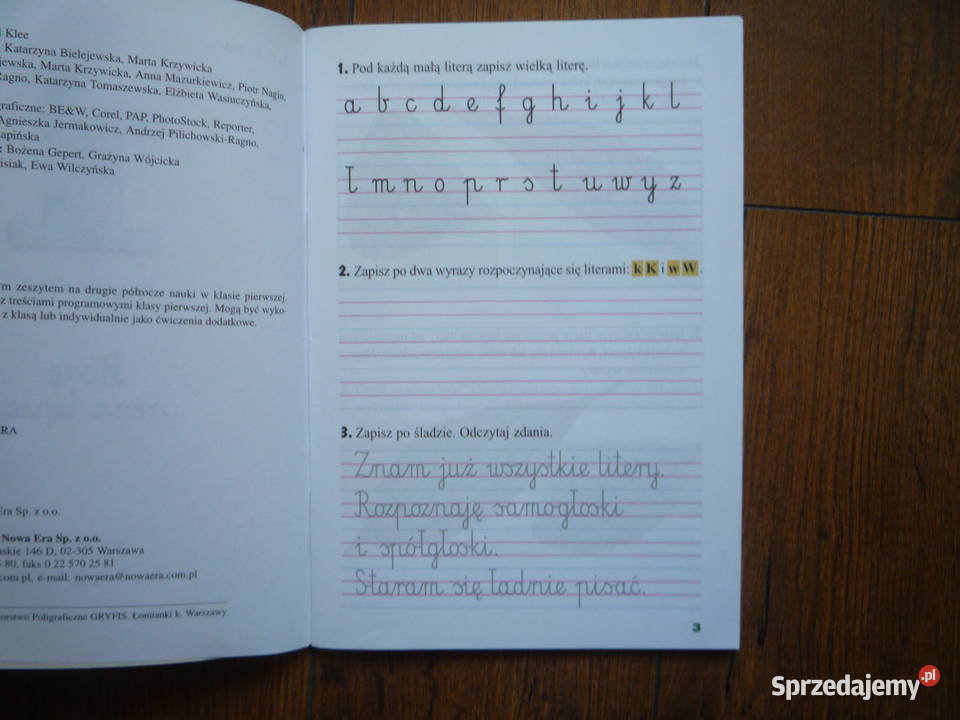 Klee
Katarzyna Bielejewska, Marta Krzywicka
jewska, Marta Krzywicka, Anna Mazurkiewicz, Piotr Nagin,
Ragno, Katarzyna Tomaszewska, Elżbieta Wasiuczyńska,
graficzne: BE&W, Corel, PAP, PhotoStock, Reporter,
Agnieszka Jermakowicz, Andrzej Pilichowski-Ragno,
apińska
Bożena Gepert, Grażyna Wójcicka
isiak, Ewa Wilczyńska
m zeszytem na drugie półrocze nauki w klasie pierwszej.
z treściami programowymi klasy pierwszej. Mogą być wyko-
z klasą lub indywidualnie jako ćwiczenia dodatkowe.
RA
Era Sp. z o.o.
Nowa Era Sp. z o.o.
skie 146 D, 02-305 Warszawa
80, faks 0 22 570 25 81
com.pl, e-mail: nowaera@nowaera.com.pl
orstwo Poligraficzne GRYFIS, Łomianki k. Warszawy
1. Pod każdą małą literą zapisz wielką literę.
a b c d e f g h i j k l
ł m n o p r s t u w y z
2. Zapisz po dwa wyrazy rozpoczynające się literami: k K i w W.
3. Zapisz po śladzie. Odczytaj zdania.
Znam już wszystkie litery.
Rozpoznaję samogłoski
i spółgłoski.
Staram się ładnie pisać.
3
Sprzedajemy.pl